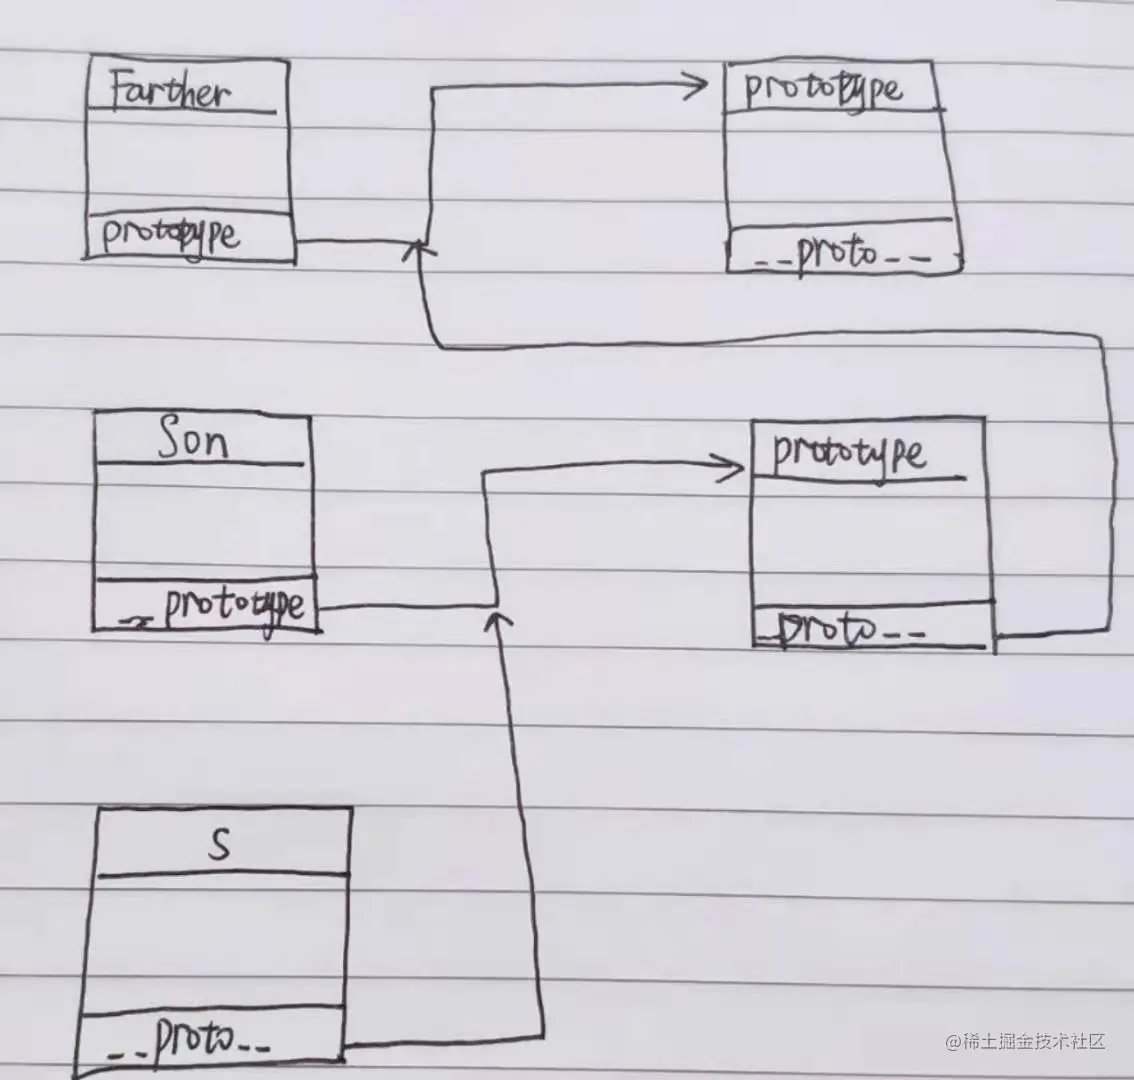 Farther
prototype
prototype
__proto__
Son
prototype
__prototype
__proto__
S
__proto__
@稀土掘金技术社区